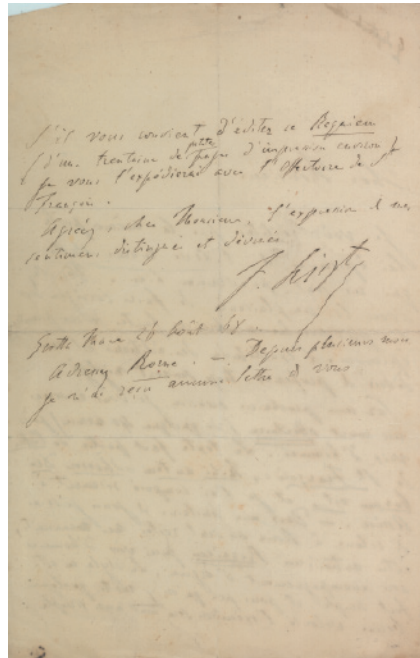 S'il vous convient d'éditer ce Requiem
(d'une trentaine de petites pages d'impression environ)
je vous l'expédierai avec l'Offertoire de
françois.
Agréez, cher Monsieur, l'expression de mes
sentiments distingués et dévoués
F. Liszt
Grotta Mare 26 Août 68.
Adressez Rome. – Depuis plusieurs mois
je n'ai reçu aucune lettre de vous